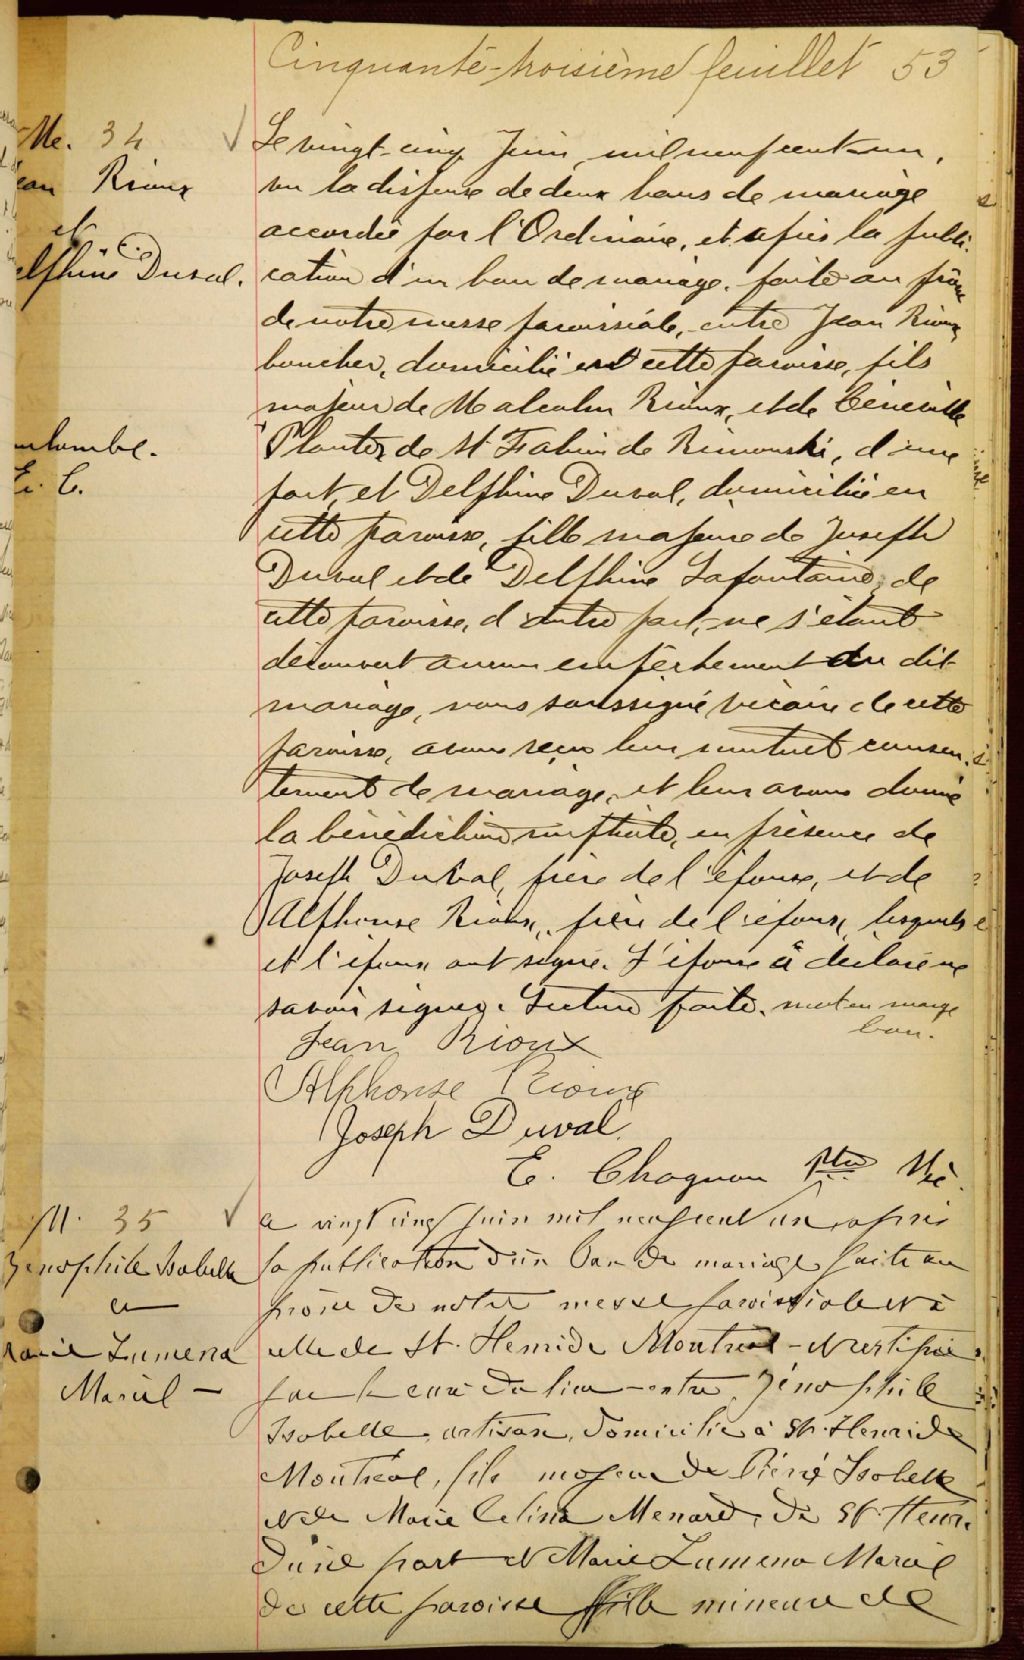 Cinquante-troisième feuillet 53
Me. 34
ean Rioux
et
elphine Duval.
Le vingt-cinq Juin, mil neuf cent-un,
vu la dispense de deux bans de mariage
accordée par l'Ordinaire, et après la publi-
cation d'un ban de mariage, faite au prône
de notre messe paroissiale, entre Jean Rioux
boucher, domicilié en cette paroisse, fils
majeur de Malcolm Rioux, et de
Plante, de St Fabien de Rimouski, d'une
part, et Delphine Duval, domiciliée en
cette paroisse, fille majeure de Joseph
Duval et de Delphine Lafontaine, de
cette paroisse, d'autre part, ne s'étant
découvert aucun empêchement au dit
mariage, nous soussigné vicaire de cette
paroisse, avons reçu leur mutuel consen-
tement de mariage, et leur avons donné
la bénédiction nuptiale, en présence de
Joseph Duval, père de l'épouse, et de
Alphonse Rioux, frère de l'époux, lesquels
et l'époux ont signé. L'épouse a déclaré ne
savoir signer. Lecture faite. mot en marge
bon.
E. C.
Jean Rioux
Alphonse Rioux
Joseph Duval
E. Chagnon Ptre Vic.
M. 35
Zénophile Isabelle
et
Marie Lumena
Marcil -
Le vingt cinq juin mil neuf cent un, après
la publication d'un ban de mariage faite au
prône de notre messe paroissiale et à
celle de St. Henri de Montréal - et certifiée
par le curé du lieu - entre Zénophile
Isabelle, artisan, domicilié à St. Henri de
Montréal, fils majeur de Pierre Isabelle
et de Marie Celina Menard, de St. Henri
d'une part et Marie Lumena Marcil
de cette paroisse fille mineure de